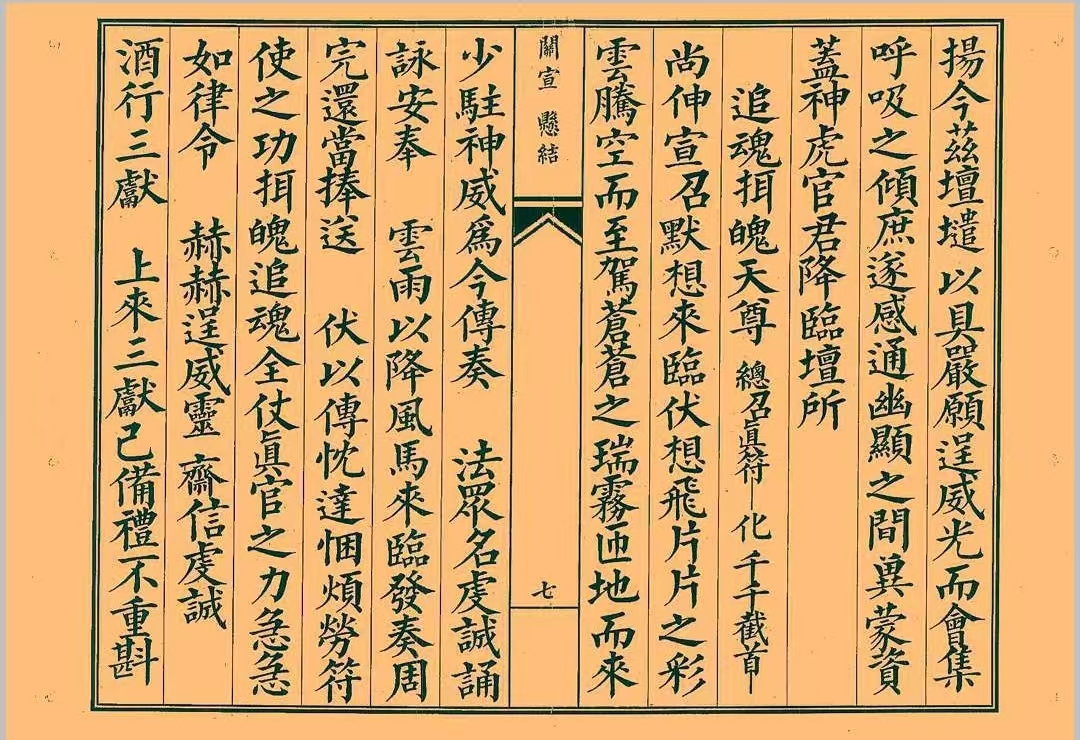 揚今茲壇壝以具嚴願逞威光而會集
呼吸之傾庶遂感通幽顯之間兾蒙資
蓋神虎官君降臨壇所
追魂挕魄天尊 總召眞符一化千千截首一
尚伸宣召默想來臨伏想飛片片之彩
雲騰空而至駕蒼蒼之瑞霧匝地而來
關宣 懸結 七
少駐神威爲今傳奏 法眾名虔誠誦
詠安奉 雲雨以降風馬來臨發奏周
完還當捧送 伏以傳忱達悃煩勞符
使之功挕魄追魂全仗眞官之力急急
如律令 赫赫逞威靈 齋信虔誠
酒行三獻 上來三獻已備禮不重斟